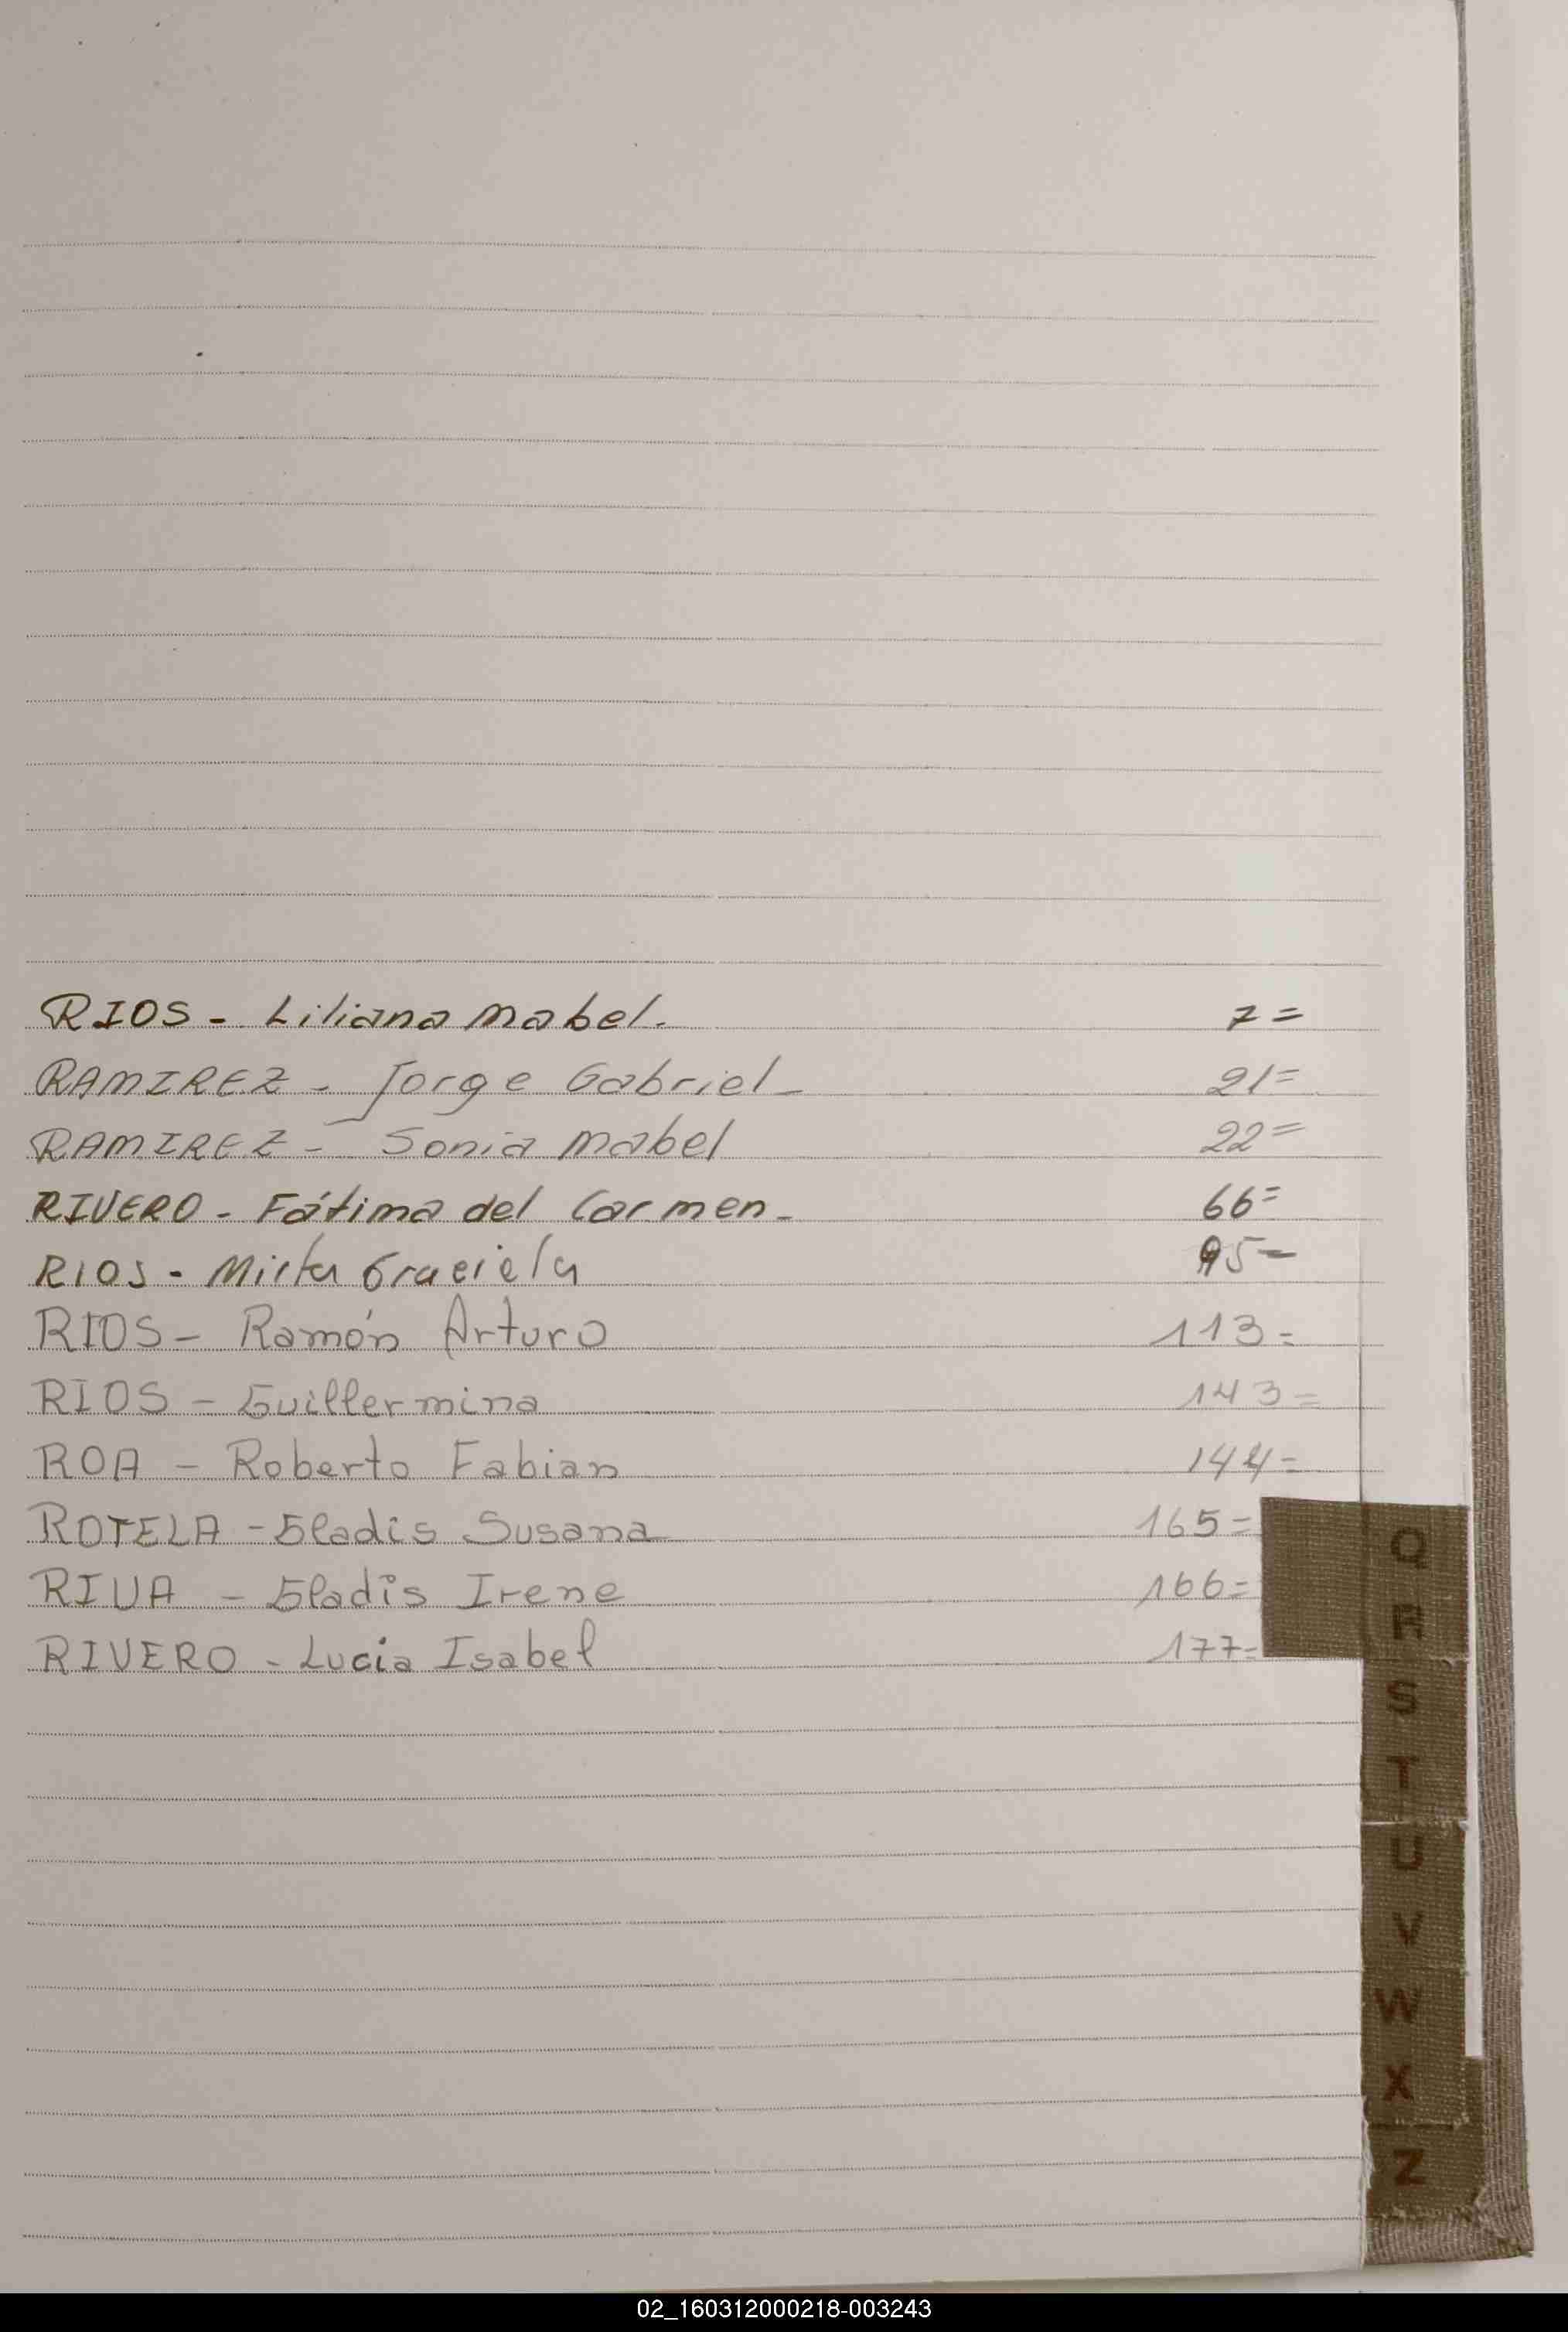 RIOS - Liliana Mabel. 7=
RAMIREZ - Jorge Gabriel - 21=
RAMIREZ - Sonia Mabel 22=
RIVERO - Fátima del Carmen - 66=
RIOS - Mirta Graciela 95=
RIOS - Ramón Arturo 113=
RIOS - Guillermina 143=
ROA - Roberto Fabian 144=
ROTELA - Gladis Susana 165=
RIVA - Gladis Irene 166=
RIVERO - Lucia Isabel 177=
Q
R
S
T
U
V
W
X
Z
02_160312000218-003243